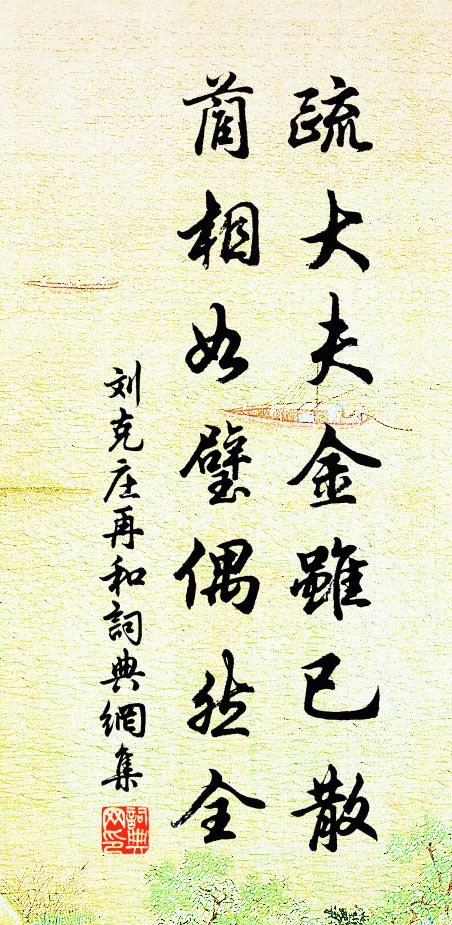 疏大夫金雖已散
蔺相如璧偶然全
刘克庄再和詞典網集
詞典網印